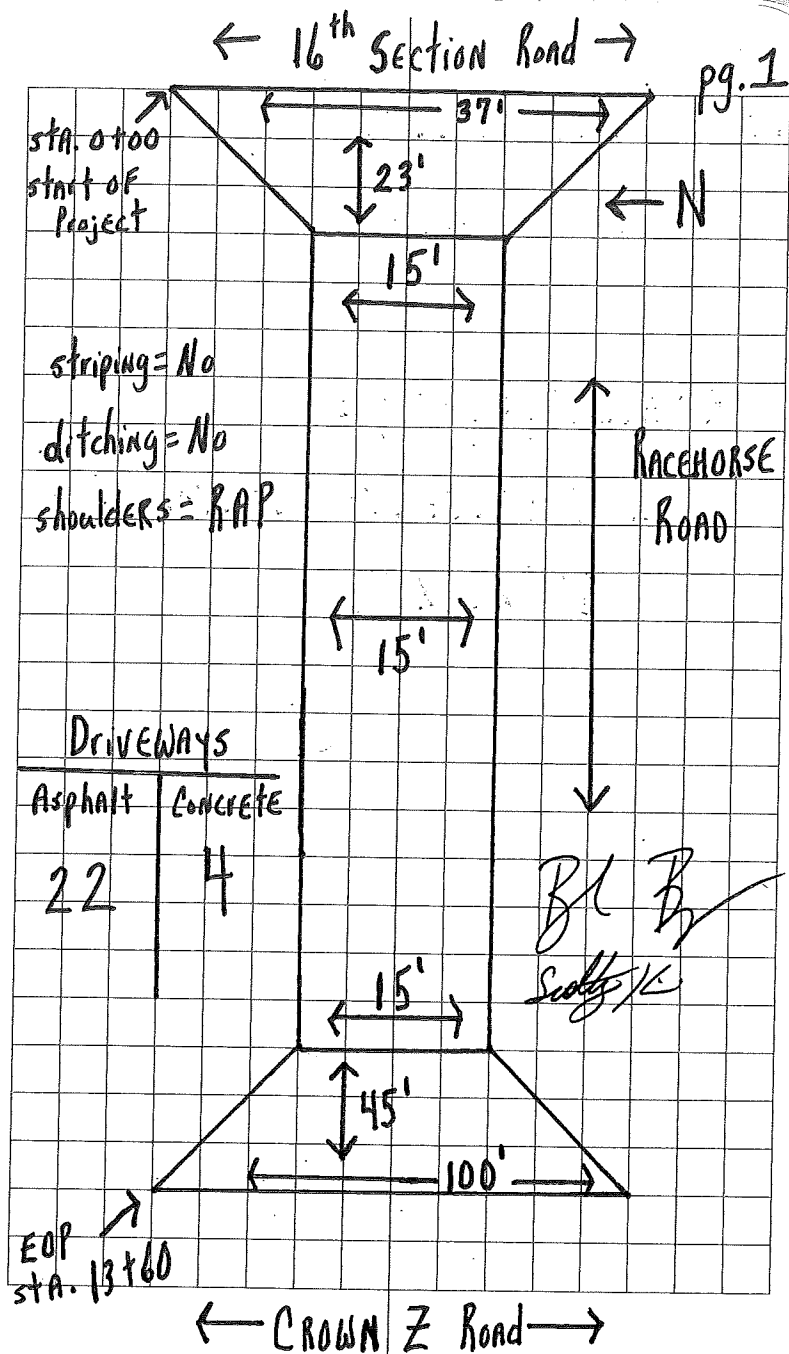 ← 16th Section Road →
pg. 1
37'
sta. 0+00
start of
Project
23'
← N
15'
striping = No
ditching = No
shoulders = RAP
RACEHORSE
ROAD
15'
Driveways
Asphalt Concrete
22 4
15'
45'
100'
EOP
sta. 13+60
← CROWN Z Road →